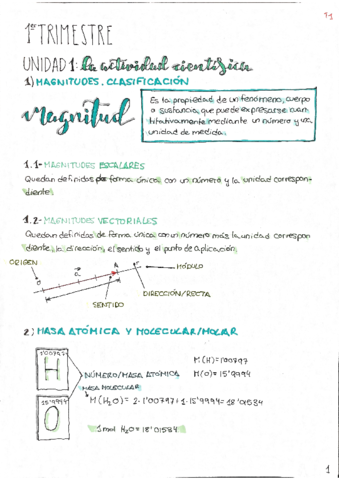 1
1er TRIMESTRE
UNIDAD 1: la actividad científica
1) MAGNITUDES. CLASIFICACIÓN
Magnitud
Es la propiedad de un fenómeno, cuerpo
o sustancia, que puede expresarse cuan
titativamente mediante un número y una
unidad de medida.
1.1- MAGNITUDES ESCALARES
Quedan definidas de forma única con un número y la unidad correspon-
diente.
1.2- MAGNITUDES VECTORIALES
Quedan definidas de forma única con un número más la unidad correspon
diente, la dirección, el sentido y el punto de aplicación.
ORIGEN
O
a
A
r
MÓDULO
DIRECCIÓN/RECTA
SENTIDO
2) MASA ATÓMICA Y MOLECULAR/MOLAR
1'00797
H
NÚMERO/MASA ATÓMICA
M(H)=1'00797
M(O)=15'9994
MASA MOLECULAR
15'9994
O
M(H2O) = 2·1'00797+1·15'9994=18'01534
1mol H2O=18'01534
1